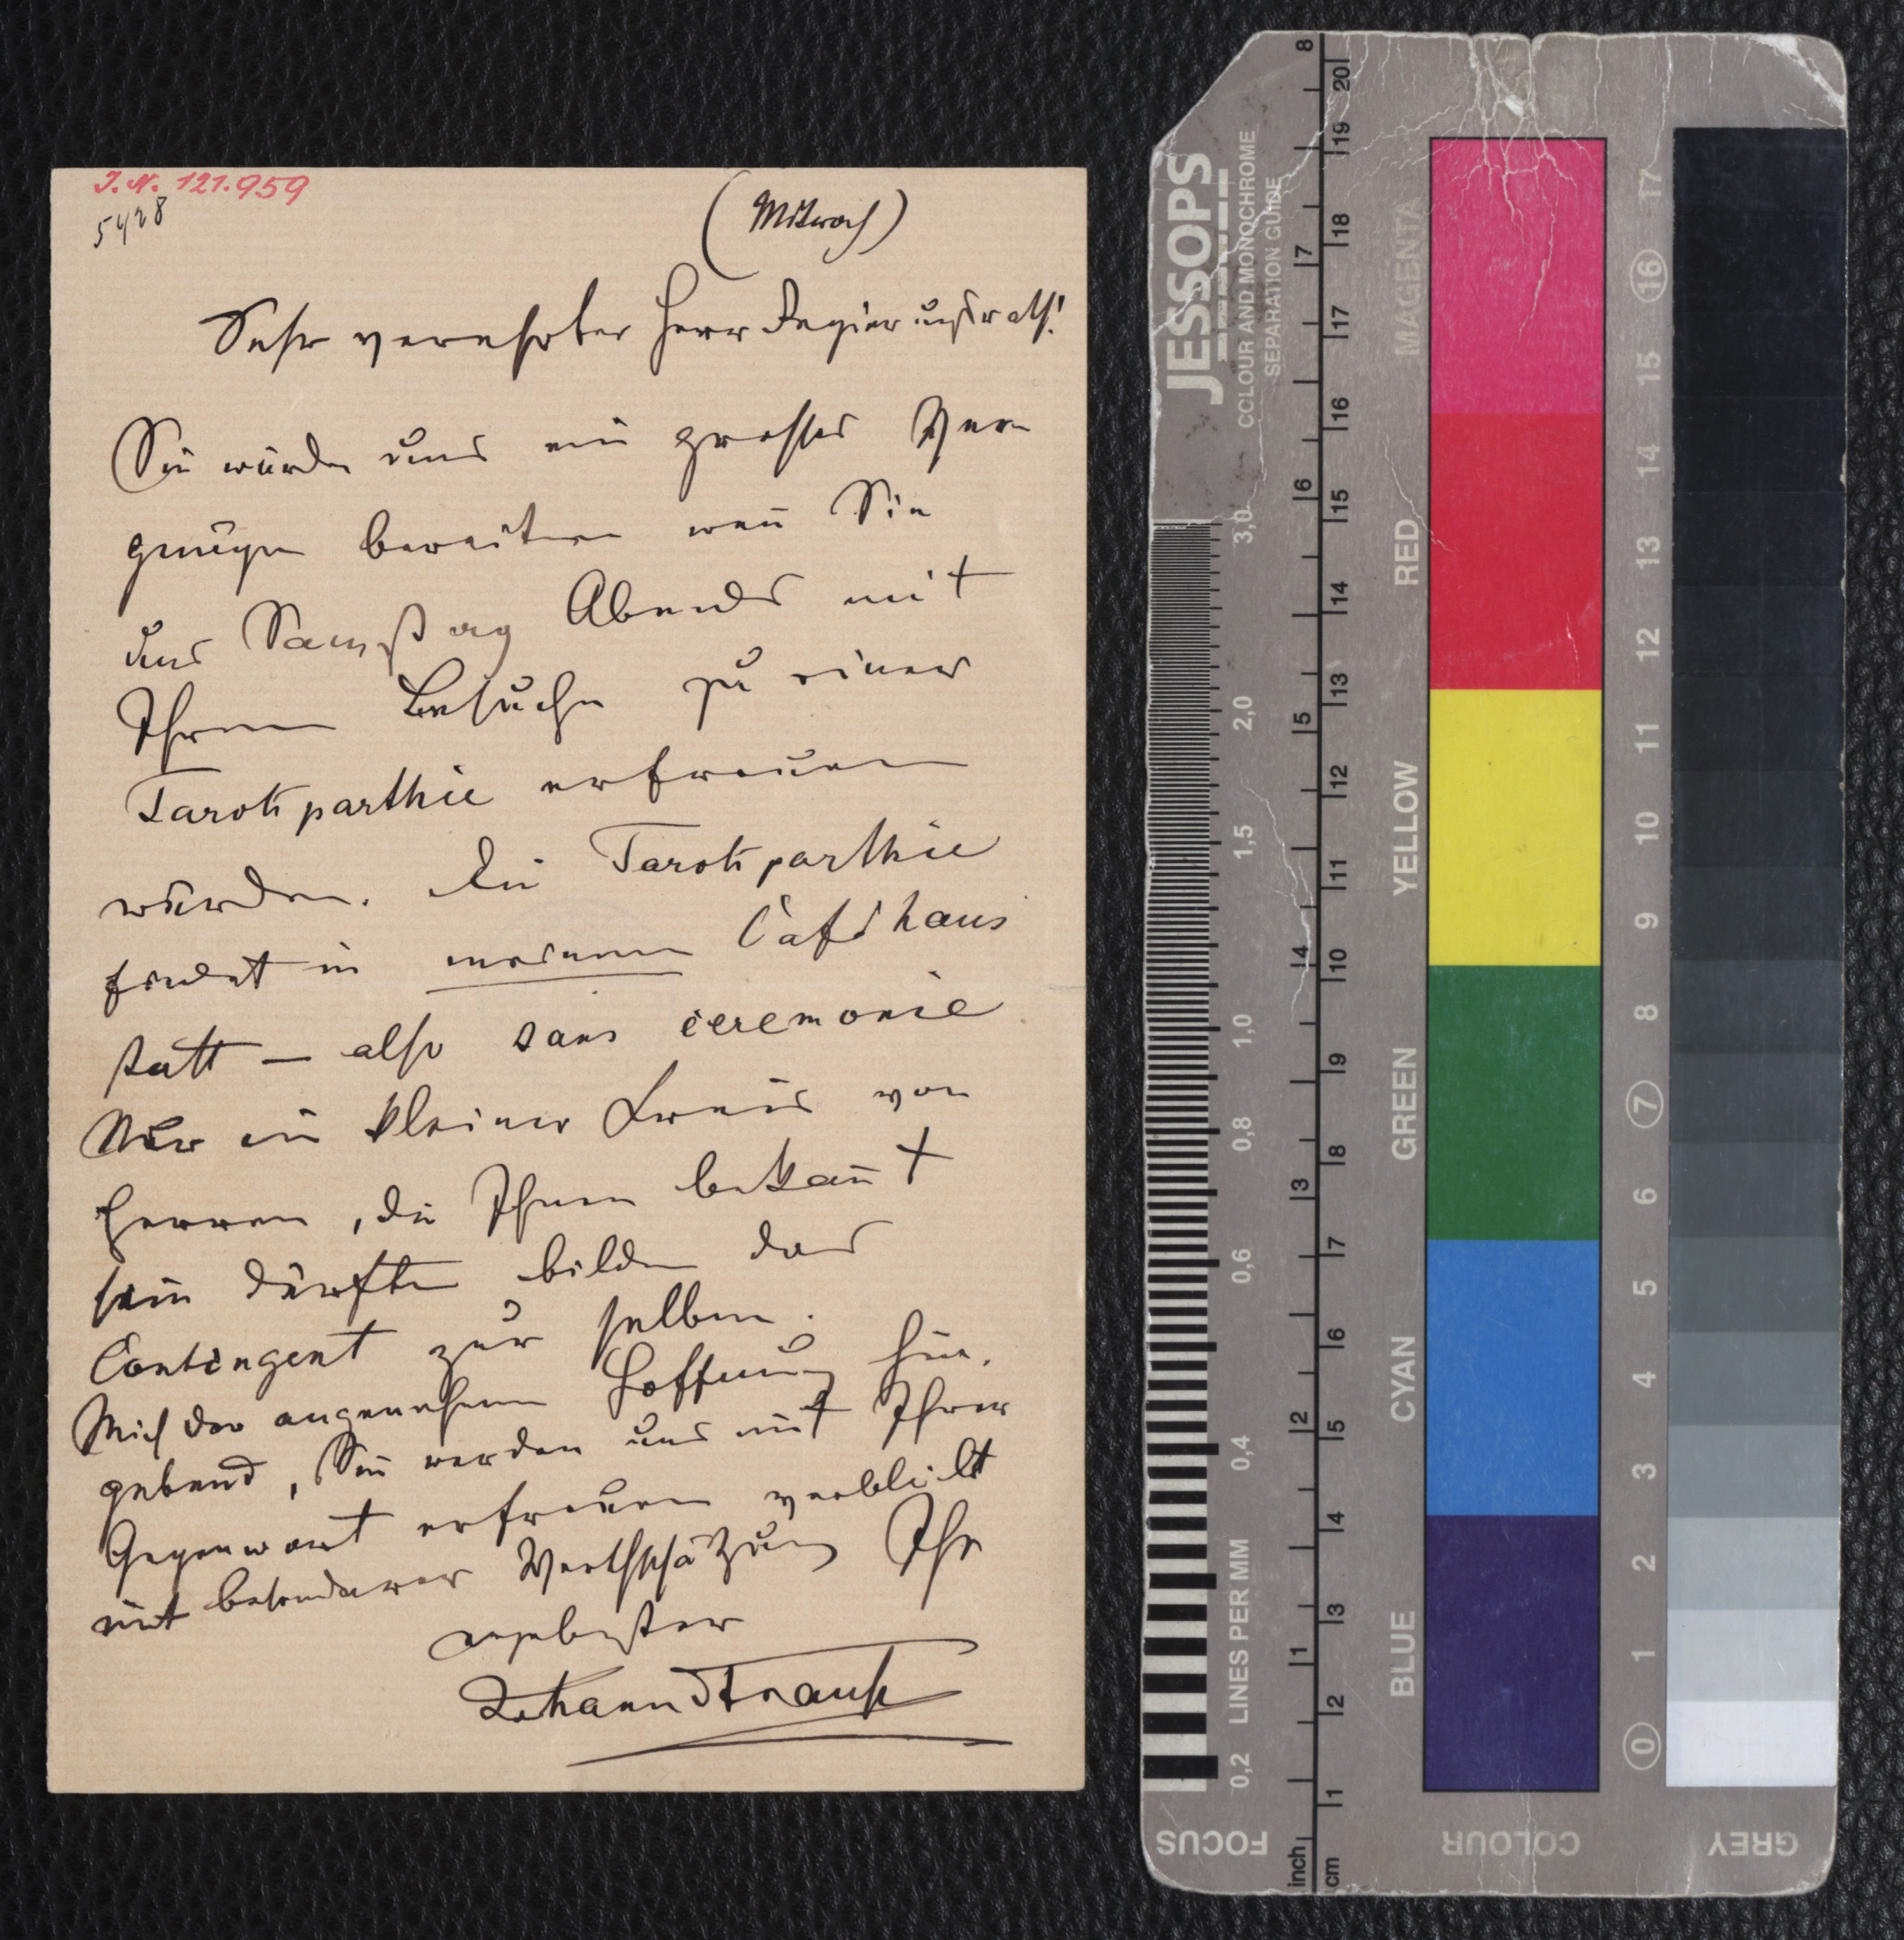 J. N. 121.959
5428
(Mittwoch)
Sehr verehrter Herr Regierungsrath!
Sie würden uns ein grosses Ver
gnügen bereiten wen̄ Sie
uns Samstag Abends mit
Ihrem Besuche zu einer
Tarokparthie erfreuen
würden. Die Tarokparthie
findet in meinem Caféhaus
statt — also sans ceremonie
Nur ein kleiner Kreis von
Herren, die Ihnen bekan̄t
sein dürften bilden das
Contingent zur selben.
Mich der angenehmen Hoffnung hin.
gebend, Sie werden uns mit Ihrer
Gegenwart erfreuen verbleibt
mit besonderer Werthschätzung Ihr
ergebenster
Johann Strauss
JESSOPS
COLOUR AND MONOCHROME
SEPARATION GUIDE
3,0
2,0
1,5
1,0
0,8
0,6
0,4
0,2 LINES PER MM
FOCUS
8
7
6
5
4
3
2
1
inch
20
19
18
17
16
15
14
13
12
11
10
9
8
7
6
5
4
3
2
1
cm
MAGENTA
RED
YELLOW
GREEN
CYAN
BLUE
COLOUR
17
16
15
14
13
12
11
10
9
8
7
6
5
4
3
2
1
0
GREY